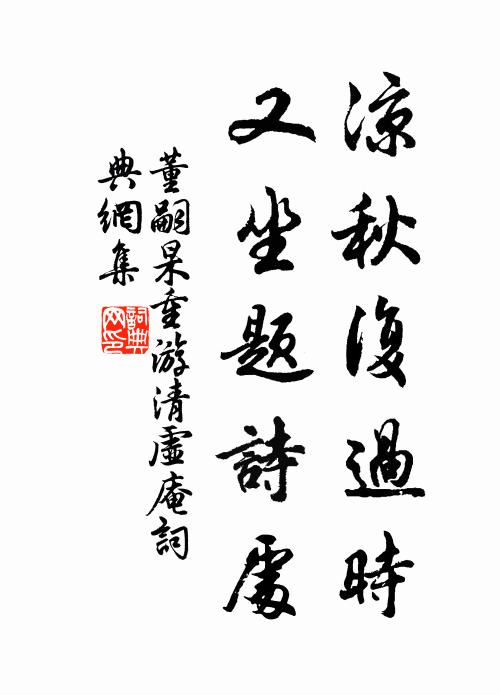 凉秋復過時
又坐題詩處
董嗣杲重游清虛庵詞
典網集
詞典网印